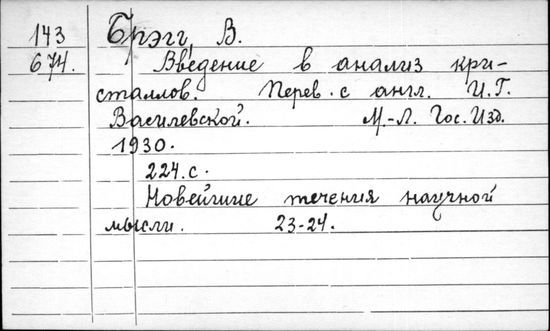 143 Брэгг, В.
674. Введение в анализ кри-
сталлов. Перев. с англ. И.Г.
Василевской. М.-Л. Гос. Изд.
1930.
224. с.
Новейшие течения научной
мысли. 23-24.